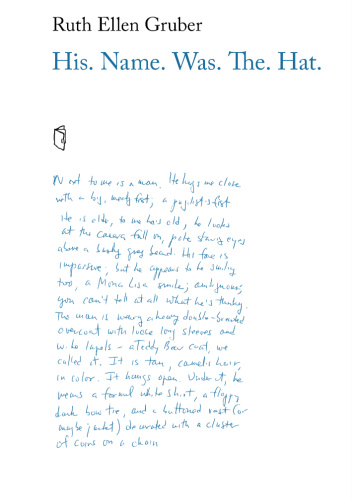 Ruth Ellen Gruber
His. Name. Was. The. Hat.
Next to me is a man. He hugs me close
with a big, meaty fist, a pugilist's fist
He is older, to me he's old, he looks
at the camera full on, pale staring eyes
above a bushy grey beard. His face is
impassive, but he appears to be smiling
too, a Mona Lisa smile; ambiguous;
you can't tell at all what he's thinking.
The man is wearing a heavy double-breasted
overcoat with loose long sleeves and
wide lapels - a Teddy Bear coat, we
called it. It is tan, camels hair,
in color. It hangs open. Under it, he
wears a formal white shirt, a floppy
dark bow tie, and a buttoned vest (or
maybe jacket) decorated with a cluster
of coins on a chain